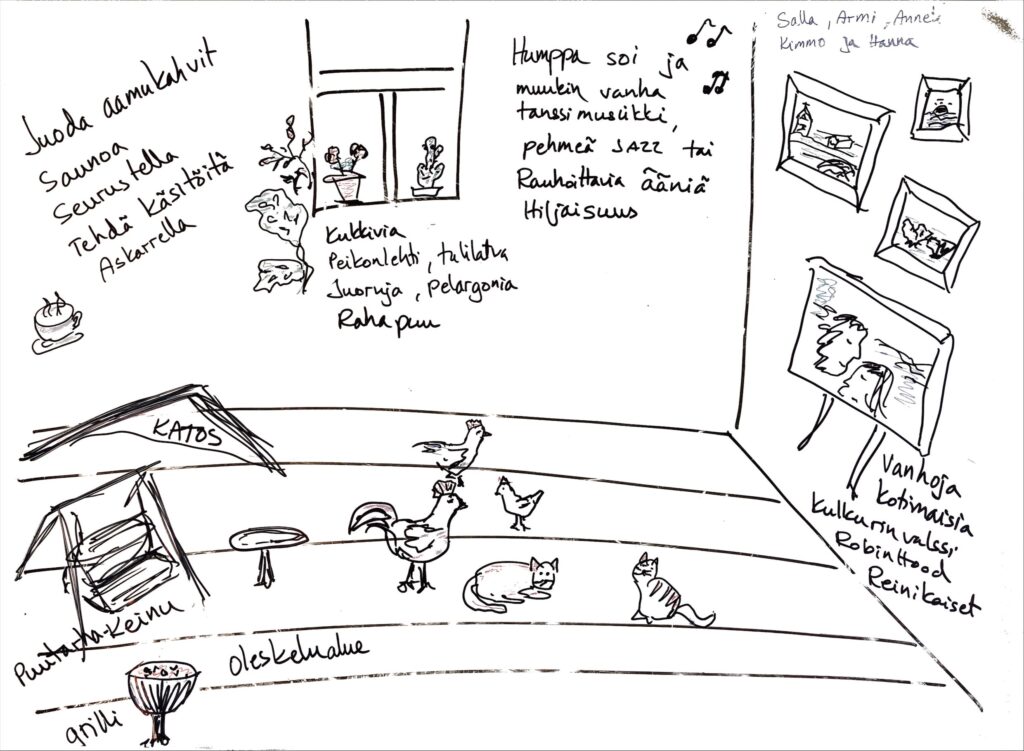 Salla, Armi, Anne,
Kimmo ja Hanna
Juoda aamukahvit
Saunoa
Seurustella
Tehdä käsitöitä
Askarrella
Humppa soi ja
muukin vanha
tanssimusiikki,
pehmeä JAZZ tai
Rauhoittavia ääniä
Hiljaisuus
Kukkivia
Peikonlehti, tulilatva
Juoruja, Pelargonia
Rahapuu
KATOS
Vanhoja
kotimaisia
Kulkurin valssi
Robin Hood
Reinikaiset
Puutarha-Keinu
oleskelualue
grilli